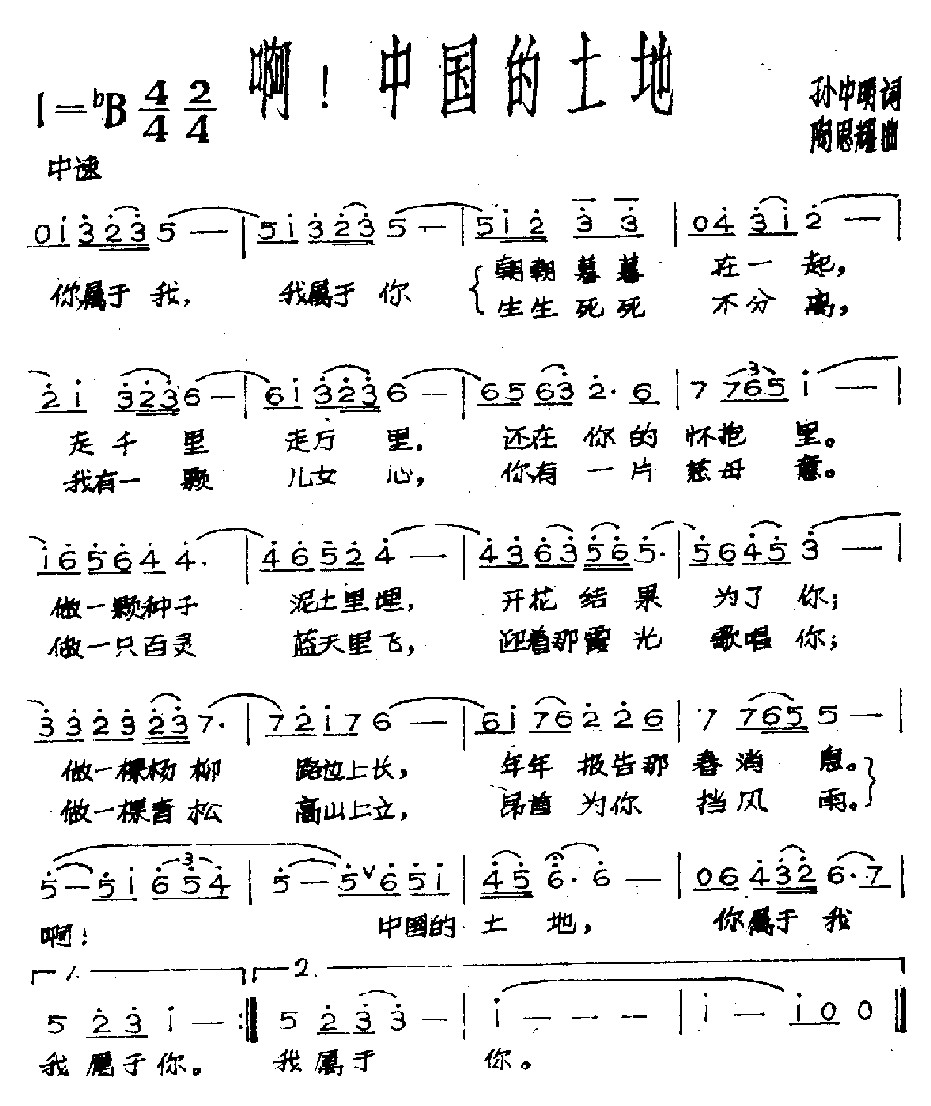 啊！中国的土地
1=♭B 4/4 2/4
孙中明词
陶思耀曲
中速
0i323 5 — 5i323 5 — 5i2 3 3 04 3i 2 —
你属于我， 我属于你 朝朝暮暮 在一起，
生生死死 不分离，
2i 323 6 — 6i323 6 — 65 63 2· 6 7 765 i —
走千里 走万里， 还在你的怀抱里。
我有一颗 儿女心， 你有一片慈母意。
i6 56 4 4· 46 52 4 — 43 63 56 5· 56 45 3 —
做一颗种子 泥土里埋， 开花结果 为了你；
做一只百灵 蓝天里飞， 迎着那霞光 歌唱你；
33 23 23 7· 72 i7 6 — 6i 76 2 26 7 765 5 —
做一棵杨柳 路边上长， 年年报告那春消息。
做一棵青松 高山上立， 昂首为你挡风雨。
5 — 5i 654 5 — 5∨65i 45 6· 6 — 06 432 6·7
啊！ 中国的土地， 你属于我
1. 2.
5 23 i — 5 23 3 — i — — — i — i00
我属于你。 我属于 你。